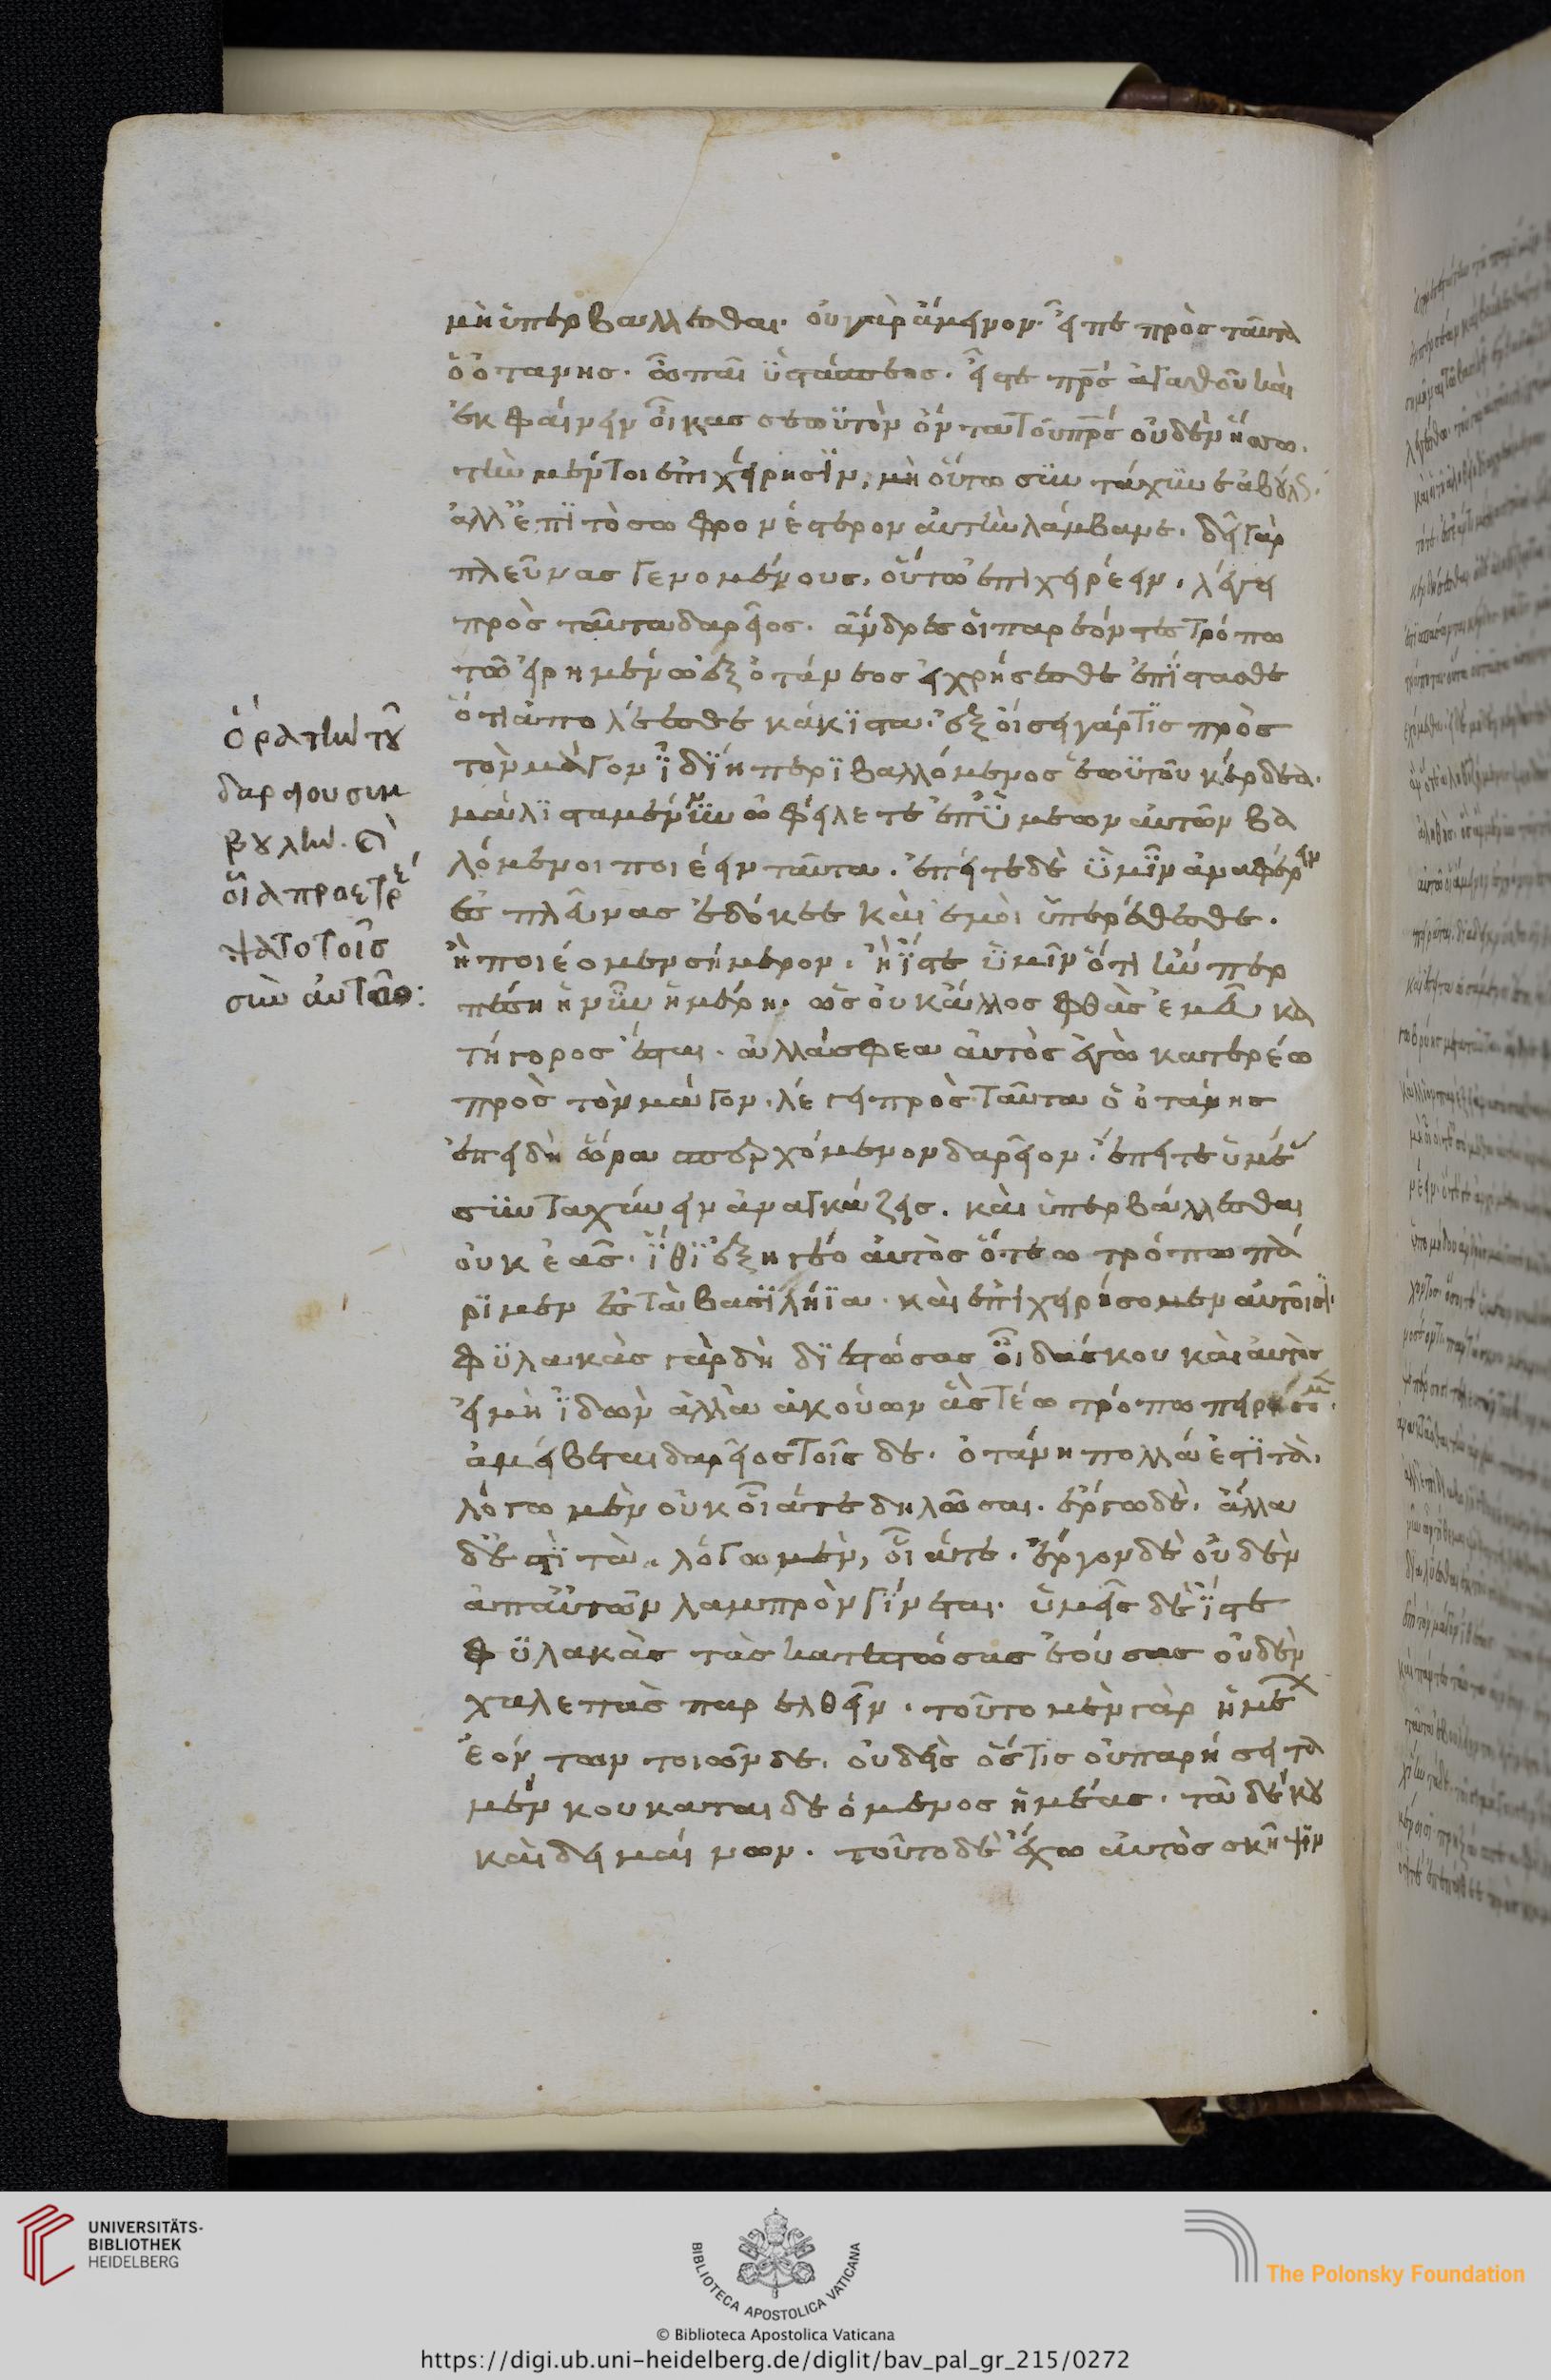 μὴ ὑπερβάλλεσθαι. οὐ γὰρ ἄμεινον. εἶπε πρὸς ταῦτα
ὁ ὀτάνης. ὦ παῖ ὑστάσπεος. εἶς τε πρς ἀγαθοῦ καὶ
ἐκφαίνειν οἶκας σεωϋτὸν ὄντα τοῦ πρς οὐδὲν ἥσσω.
τὴν μέντοι ἐπιχείρησϊν, μὴ οὕτω συντάχυνε ἀβούλως.
ἀλλ' ἐπὶ τὸ σωφρονέστερον αὐτὴν λάμβανε. δεῖ γὰρ
πλεῦνας γενομένους. οὕτω ἐπιχειρέειν. λέγει
πρὸς ταῦτα δαρεῖος. ἄνδρες οἱ παρεόντες τρόπω
τῶ εἰρημένω ἐξ ὀτάνεος εἰ χρήσεσθε ἐπίστασθε
ὅτι ἀπολέεσθε κάκϊστα. ἐξοίσει γάρ τϊς πρὸς
τὸν μάγον ἰδίη περϊβαλλόμενος ἑωϋτοῦ κέρδεα.
μάλϊστα μέν νυν ὠφείλετε ἐπ' ὑμέων αὐτῶν βα
λόμενοι ποιέειν ταῦτα. ἐπείτε δὲ ὑμῖν ἀναφέρειν
ἐς πλεῦνας ἐδόκεε καὶ ἐμοὶ ὑπερέθεσθε.
ἢ ποιέομεν σήμερον. ἢ ἴστε ὑμῖν ὅτι ἢν ὑπερ
πέση ἡ νῦν ἡμέρη. ὡς οὐκ ἄλλος φθὰς ἐμεῦ κα
τήγορος ἔσται. ἀλλὰ σφεα αὐτὸς ἐγὼ κατερέω
πρὸς τὸν μάγον. λέγει πρὸς ταῦτα ὁ ὀτάνης
ἐπειδὴ ὥρα σπερχόμενον δαρεῖον. ἐπείτε ὑμέας
συνταχύνειν ἀναγκάζεις. καὶ ὑπερβάλλεσθαι
οὐκ ἐᾶς. ἴθϊ ἐξηγέο αὐτὸς ὅτεω τρόπω πά
ρϊμεν ἐς τὰ βασϊλήϊα. καὶ ἐπιχειρήσομεν αὐτοῖσϊ.
φϋλακὰς γὰρ δὴ δϊεστώσας οἶδάς κου καὶ αὐτὸς
εἰ μὴ ἰδὼν ἀλλὰ ἀκούων ἃς τέω τρόπω περήσομεν.
ἀμείβεται δαρεῖος τοῖσδε. ὀτάνη πολλά ἐστϊ τὰ.
λόγω μὲν οὐκ οἷάτε δηλῶσαι. ἔργω δὲ. ἄλλα
δ' ἐστϊ τὰ. λόγω μὲν, οἷάτε. ἔργον δὲ οὐδὲν
ἀπ' αὐτῶν λαμπρὸν γίνεται. ὑμεῖς δὲ ἴστε
φϋλακὰς τὰς κατεστώσας ἐούσας οὐδὲν
χαλεπὰς παρελθεῖν. τοῦτο μὲν γὰρ ἡμέων
ἐόντων τοιῶνδε. οὐδεὶς ὅστις οὐ παρήσει τὰ
μέν κου καταιδεόμενος ἡμέας. τὰ δέ κου
καὶ δειμαίνων. τοῦτο δὲ ἔχω αὐτὸς σκῆψϊν
ὅρα τὴν τοῦ
δαρείου συμ
βουλὴν. καὶ
οἷα προετρέ
ψατο τοῖς
σὺν αὐτῶ:
UNIVERSITÄTS-
BIBLIOTHEK
HEIDELBERG
BIBLIOTECA APOSTOLICA VATICANA
The Polonsky Foundation
© Biblioteca Apostolica Vaticana
https://digi.ub.uni-heidelberg.de/diglit/bav_pal_gr_215/0272